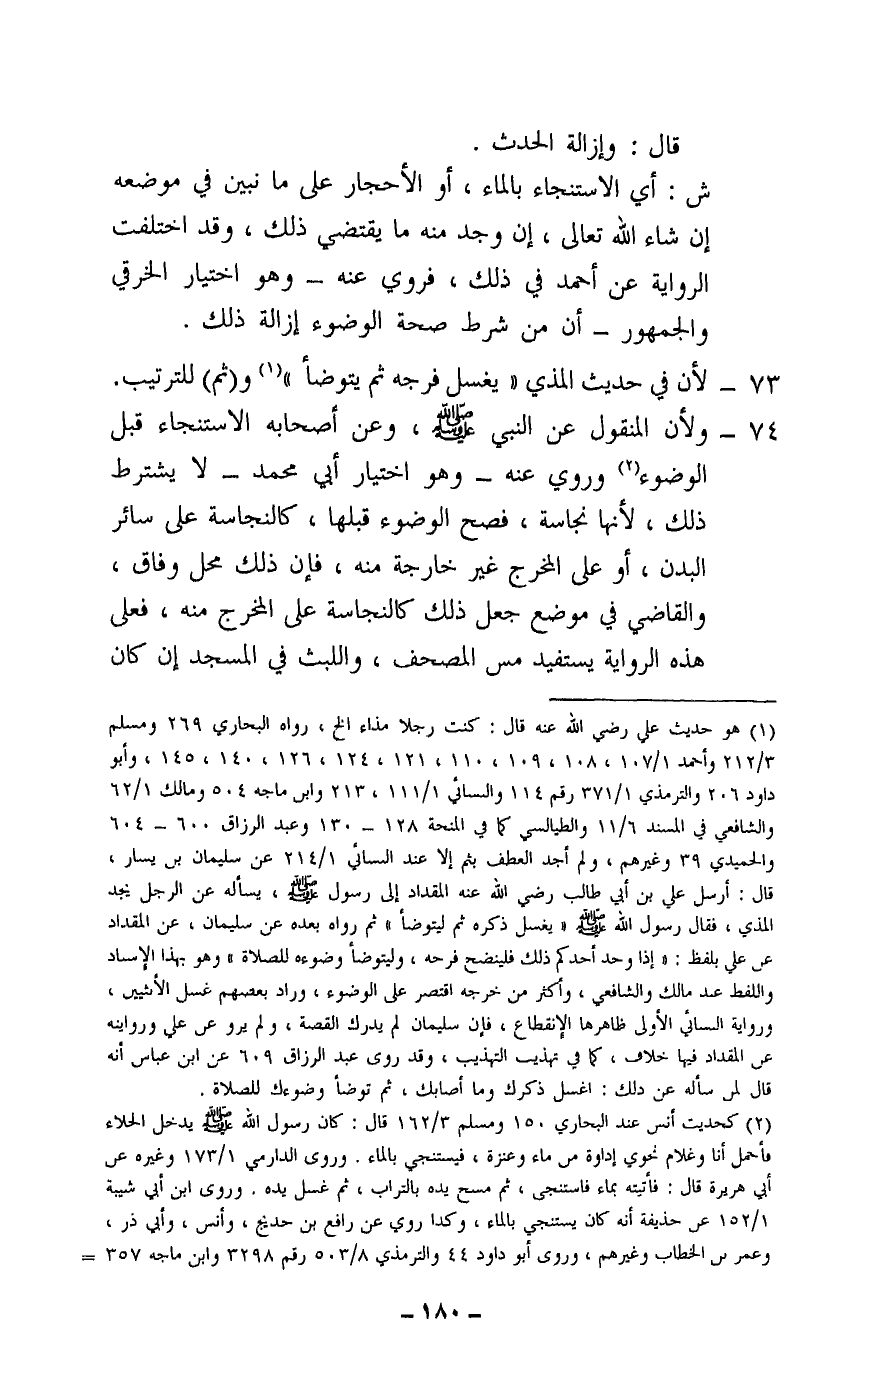 قال : وإزالة الحدث .
ش : أي الاستنجاء بالماء ، أو الأحجار على ما نبين في موضعه
إن شاء الله تعالى ، إن وجد منه ما يقتضي ذلك ، وقد اختلفت
الرواية عن أحمد في ذلك ، فروي عنه – وهو اختيار الخرقي
والجمهور – أن من شرط صحة الوضوء إزالة ذلك .
٧٣ – لأن في حديث المذي « يغسل فرجه ثم يتوضأ »(١) و(ثم) للترتيب.
٧٤ – ولأن المنقول عن النبي ﷺ ، وعن أصحابه الاستنجاء قبل
الوضوء(٢) وروي عنه – وهو اختيار أبي محمد – لا يشترط
ذلك ، لأنها نجاسة ، فصح الوضوء قبلها ، كالنجاسة على سائر
البدن ، أو على المخرج غير خارجة منه ، فإن ذلك محل وفاق ،
والقاضي في موضع جعل ذلك كالنجاسة على المخرج منه ، فعلى
هذه الرواية يستفيد مس المصحف ، واللبث في المسجد إن كان
(١) هو حديث علي رضي الله عنه قال : كنت رجلا مذاء الخ ، رواه البخاري ٢٦٩ ومسلم
٢١٢/٣ وأحمد ١٠٧/١ ، ١٠٨ ، ١٠٩ ، ١١٠ ، ١٢١ ، ١٢٤ ، ١٢٦ ، ١٤٠ ، ١٤٥ ، وأبو
داود ٢٠٦ والترمذي ٣٧١/١ رقم ١١٤ والنسائي ١١١/١ ، ٢١٣ وابن ماجه ٥٠٤ ومالك ٦٢/١
والشافعي في المسند ١١/٦ والطيالسي كما في المنحة ١٢٨ – ١٣٠ وعبد الرزاق ٦٠٠ – ٦٠٤
والحميدي ٣٩ وغيرهم ، ولم أجد العطف بثم إلا عند النسائي ٢١٤/١ عن سليمان بن يسار ،
قال : أرسل علي بن أبي طالب رضي الله عنه المقداد إلى رسول ﷺ ، يسأله عن الرجل يجد
المذي ، فقال رسول الله ﷺ « يغسل ذكره ثم ليتوضأ » ثم رواه بعده عن سليمان ، عن المقداد
عن علي بلفظ : « إذا وجد أحدكم ذلك فلينضح فرجه ، وليتوضأ وضوءه للصلاة » وهو بهذا الإسناد
واللفظ عند مالك والشافعي ، وأكثر من خرجه اقتصر على الوضوء ، وزاد بعضهم غسل الأنثيين ،
ورواية النسائي الأولى ظاهرها الإنقطاع ، فإن سليمان لم يدرك القصة ، ولم يرو عن علي وروايته
عن المقداد فيها خلاف ، كما في تهذيب التهذيب ، وقد روى عبد الرزاق ٦٠٩ عن ابن عباس أنه
قال لمن سأله عن ذلك : اغسل ذكرك وما أصابك ، ثم توضأ وضوءك للصلاة .
(٢) كحديث أنس عند البخاري ١٥٠ ومسلم ١٦٢/٣ قال : كان رسول الله ﷺ يدخل الخلاء
فأحمل أنا وغلام نحوي إداوة من ماء وعنزة ، فيستنجي بالماء . وروى الدارمي ١٧٣/١ وغيره عن
أبي هريرة قال : فأتيته بماء فاستنجى ، ثم مسح يده بالتراب ، ثم غسل يده . وروى ابن أبي شيبة
١٥٢/١ عن حذيفة أنه كان يستنجي بالماء ، وكذا روي عن رافع بن خديج ، وأنس ، وأبي ذر ،
وعمر بن الخطاب وغيرهم ، وروى أبو داود ٤٤ والترمذي ٥٠٣/٨ رقم ٣٢٩٨ وابن ماجه ٣٥٧ =
– ١٨٠ –